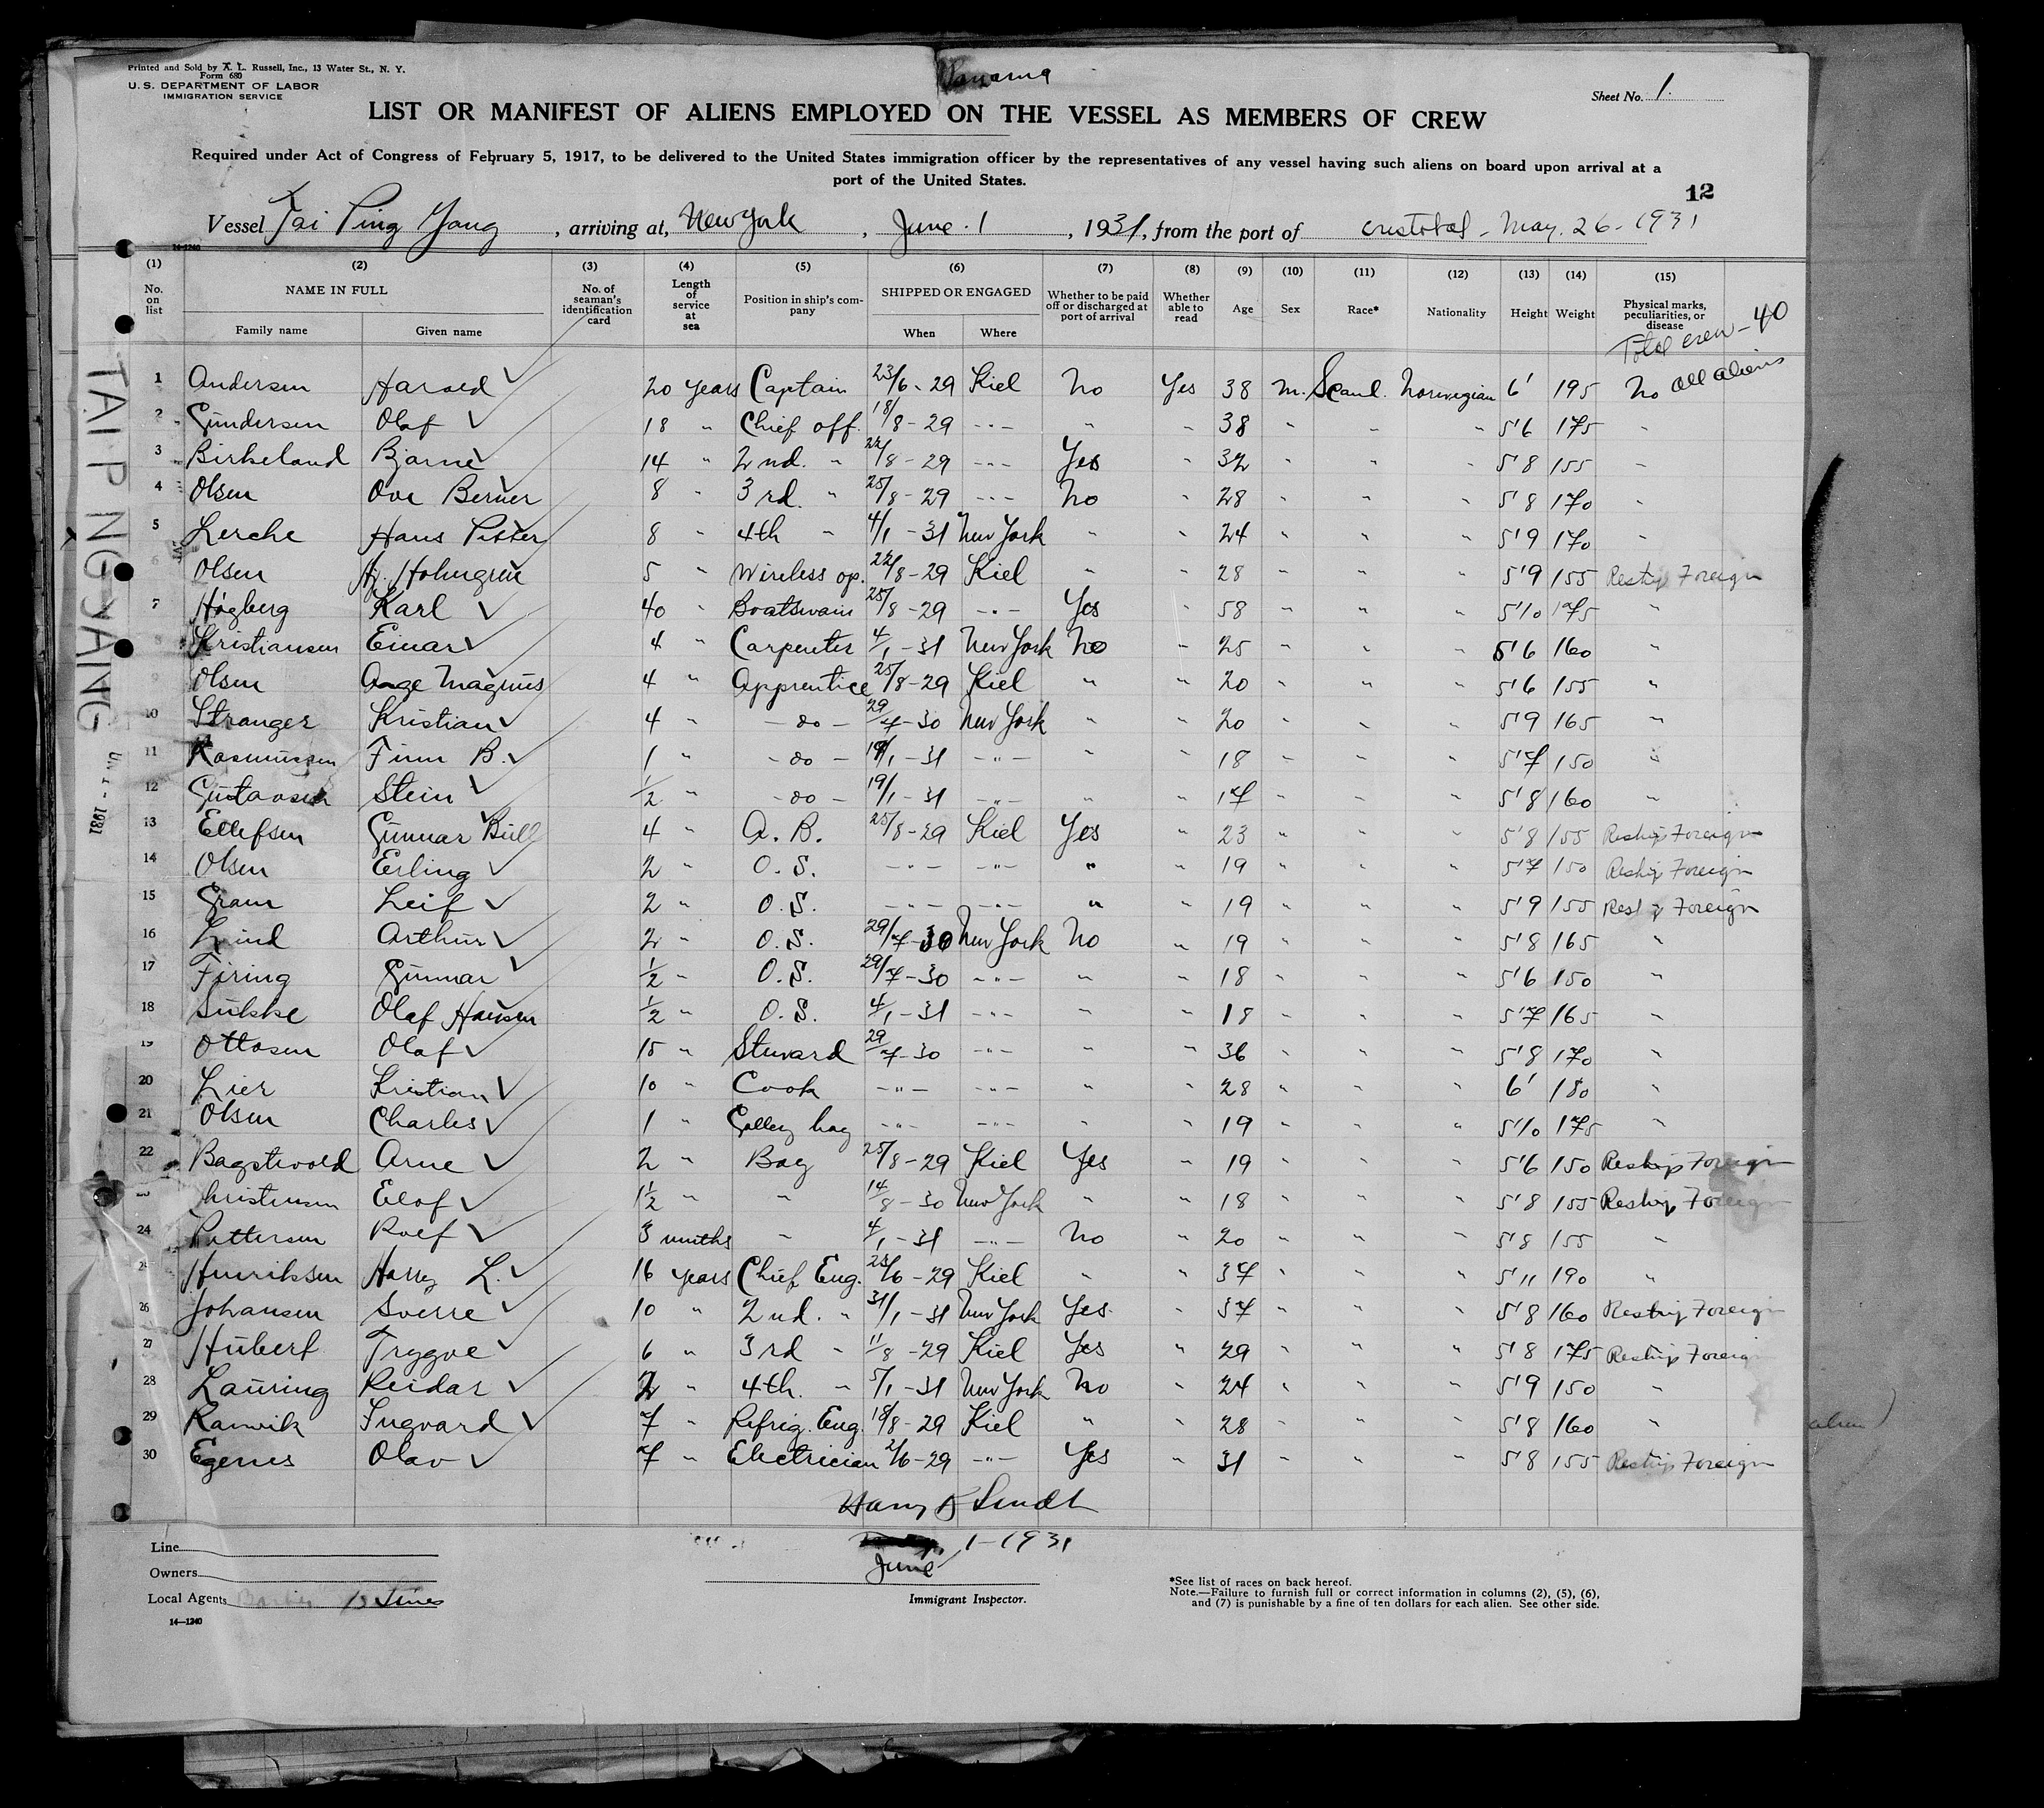 Printed and Sold by A. L. Russell, Inc., 13 Water St., N. Y.
Form 680
U. S. DEPARTMENT OF LABOR
IMMIGRATION SERVICE
Panama
Sheet No. 1.
LIST OR MANIFEST OF ALIENS EMPLOYED ON THE VESSEL AS MEMBERS OF CREW
Required under Act of Congress of February 5, 1917, to be delivered to the United States immigration officer by the representatives of any vessel having such aliens on board upon arrival at a
port of the United States.
12
Vessel Tai Ping Yang, arriving at, New York, June 1, 1931, from the port of Cristobal - May. 26 - 1931
14-1240
(1) (2) (3) (4) (5) (6) (7) (8) (9) (10) (11) (12) (13) (14) (15)
No. on list NAME IN FULL Family name Given name No. of seaman's identification card Length of service at sea Position in ship's company SHIPPED OR ENGAGED When Where Whether to be paid off or discharged at port of arrival Whether able to read Age Sex Race* Nationality Height Weight Physical marks, peculiarities, or disease
Total crew - 40
all aliens
1 Andersen Harold 20 years Captain 23/6 - 29 Kiel No Yes 38 M. Scand. Norwegian 6' 195 No
2 Gundersen Olaf 18 " Chief off. 18/8 - 29 -"- " " 38 " " " 5'6 175 "
3 Birkeland Bjarne 14 " 2nd. " 22/8 - 29 -"- Yes " 32 " " " 5'8 155 "
4 Olsen Ove Berner 8 " 3rd. " 25/8 - 29 -"- No " 28 " " " 5'8 170 "
5 Lerche Hans Petter 8 " 4th " 4/1 - 31 New York " " 24 " " " 5'9 170 "
6 Olsen Hj. Holmgren 5 " Wireless op. 22/8 - 29 Kiel " " 28 " " " 5'9 155 Reship Foreign
7 Högberg Karl 40 " Boatswain 25/8 - 29 -"- Yes " 58 " " " 5'10 175 "
8 Kristiansen Einar 4 " Carpenter 4/1 - 31 New York No " 25 " " " 5'6 160 "
9 Olsen Aage Magnus 4 " Apprentice 25/8 - 29 Kiel " " 20 " " " 5'6 155 "
10 Stranger Kristian 4 " - do - 29/7 - 30 New York " " 20 " " " 5'9 165 "
11 Rasmussen Finn B. 1 " - do - 19/1 - 31 -"- " " 18 " " " 5'7 150 "
12 Gustavsen Stein 1/2 " - do - 19/1 - 31 -"- " " 17 " " " 5'8 160 "
13 Ellefsen Gunnar Bull 4 " A. B. 25/8 - 29 Kiel Yes " 23 " " " 5'8 155 Reship Foreign
14 Olsen Erling 2 " O. S. -"- -"- " " 19 " " " 5'7 150 Reship Foreign
15 Gram Leif 2 " O. S. -"- -"- " " 19 " " " 5'9 155 Reship Foreign
16 Lund Arthur 2 " O. S. 29/7 - 30 New York No " 19 " " " 5'8 165 "
17 Firing Gunnar 1/2 " O. S. 29/7 - 30 -"- " " 18 " " " 5'6 150 "
18 Sukke Olaf Hansen 1/2 " O. S. 4/1 - 31 -"- " " 18 " " " 5'7 165 "
19 Ottosen Olaf 15 " Steward 29/7 - 30 -"- " " 36 " " " 5'8 170 "
20 Lier Kristian 10 " Cook -"- -"- " " 28 " " " 6' 180 "
21 Olsen Charles 1 " Galley boy -"- -"- " " 19 " " " 5'10 175 "
22 Bagstevold Arne 2 " Boy 25/8 - 29 Kiel Yes " 19 " " " 5'6 150 Reship Foreign
23 Christensen Elof 1 1/2 " " 14/8 - 30 New York " " 18 " " " 5'8 155 Reship Foreign
24 Pettersen Rolf 3 months " 4/1 - 31 -"- No " 20 " " " 5'8 155 "
25 Henriksen Harry L. 16 years Chief Eng. 23/6 - 29 Kiel " " 37 " " " 5'11 190 "
26 Johansen Sverre 10 " 2nd. " 31/1 - 31 New York Yes " 37 " " " 5'8 160 Reship Foreign
27 Hubert Trygve 6 " 3rd " 11/8 - 29 Kiel Yes " 29 " " " 5'8 175 Reship Foreign
28 Lauring Reidar 2 " 4th. " 5/1 - 31 New York No " 24 " " " 5'9 150 "
29 Ranvik Ingvard 7 " Refrig. Eng. 18/8 - 29 Kiel " " 28 " " " 5'8 160 "
30 Egenes Olav 7 " Electrician 2/6 - 29 -"- Yes " 31 " " " 5'8 155 Reship Foreign
TAI PING YANG
1931
Line
Owners
Local Agents
14-1240
June 1-1931
Immigrant Inspector.
*See list of races on back hereof.
Note.—Failure to furnish full or correct information in columns (2), (5), (6),
and (7) is punishable by a fine of ten dollars for each alien. See other side.